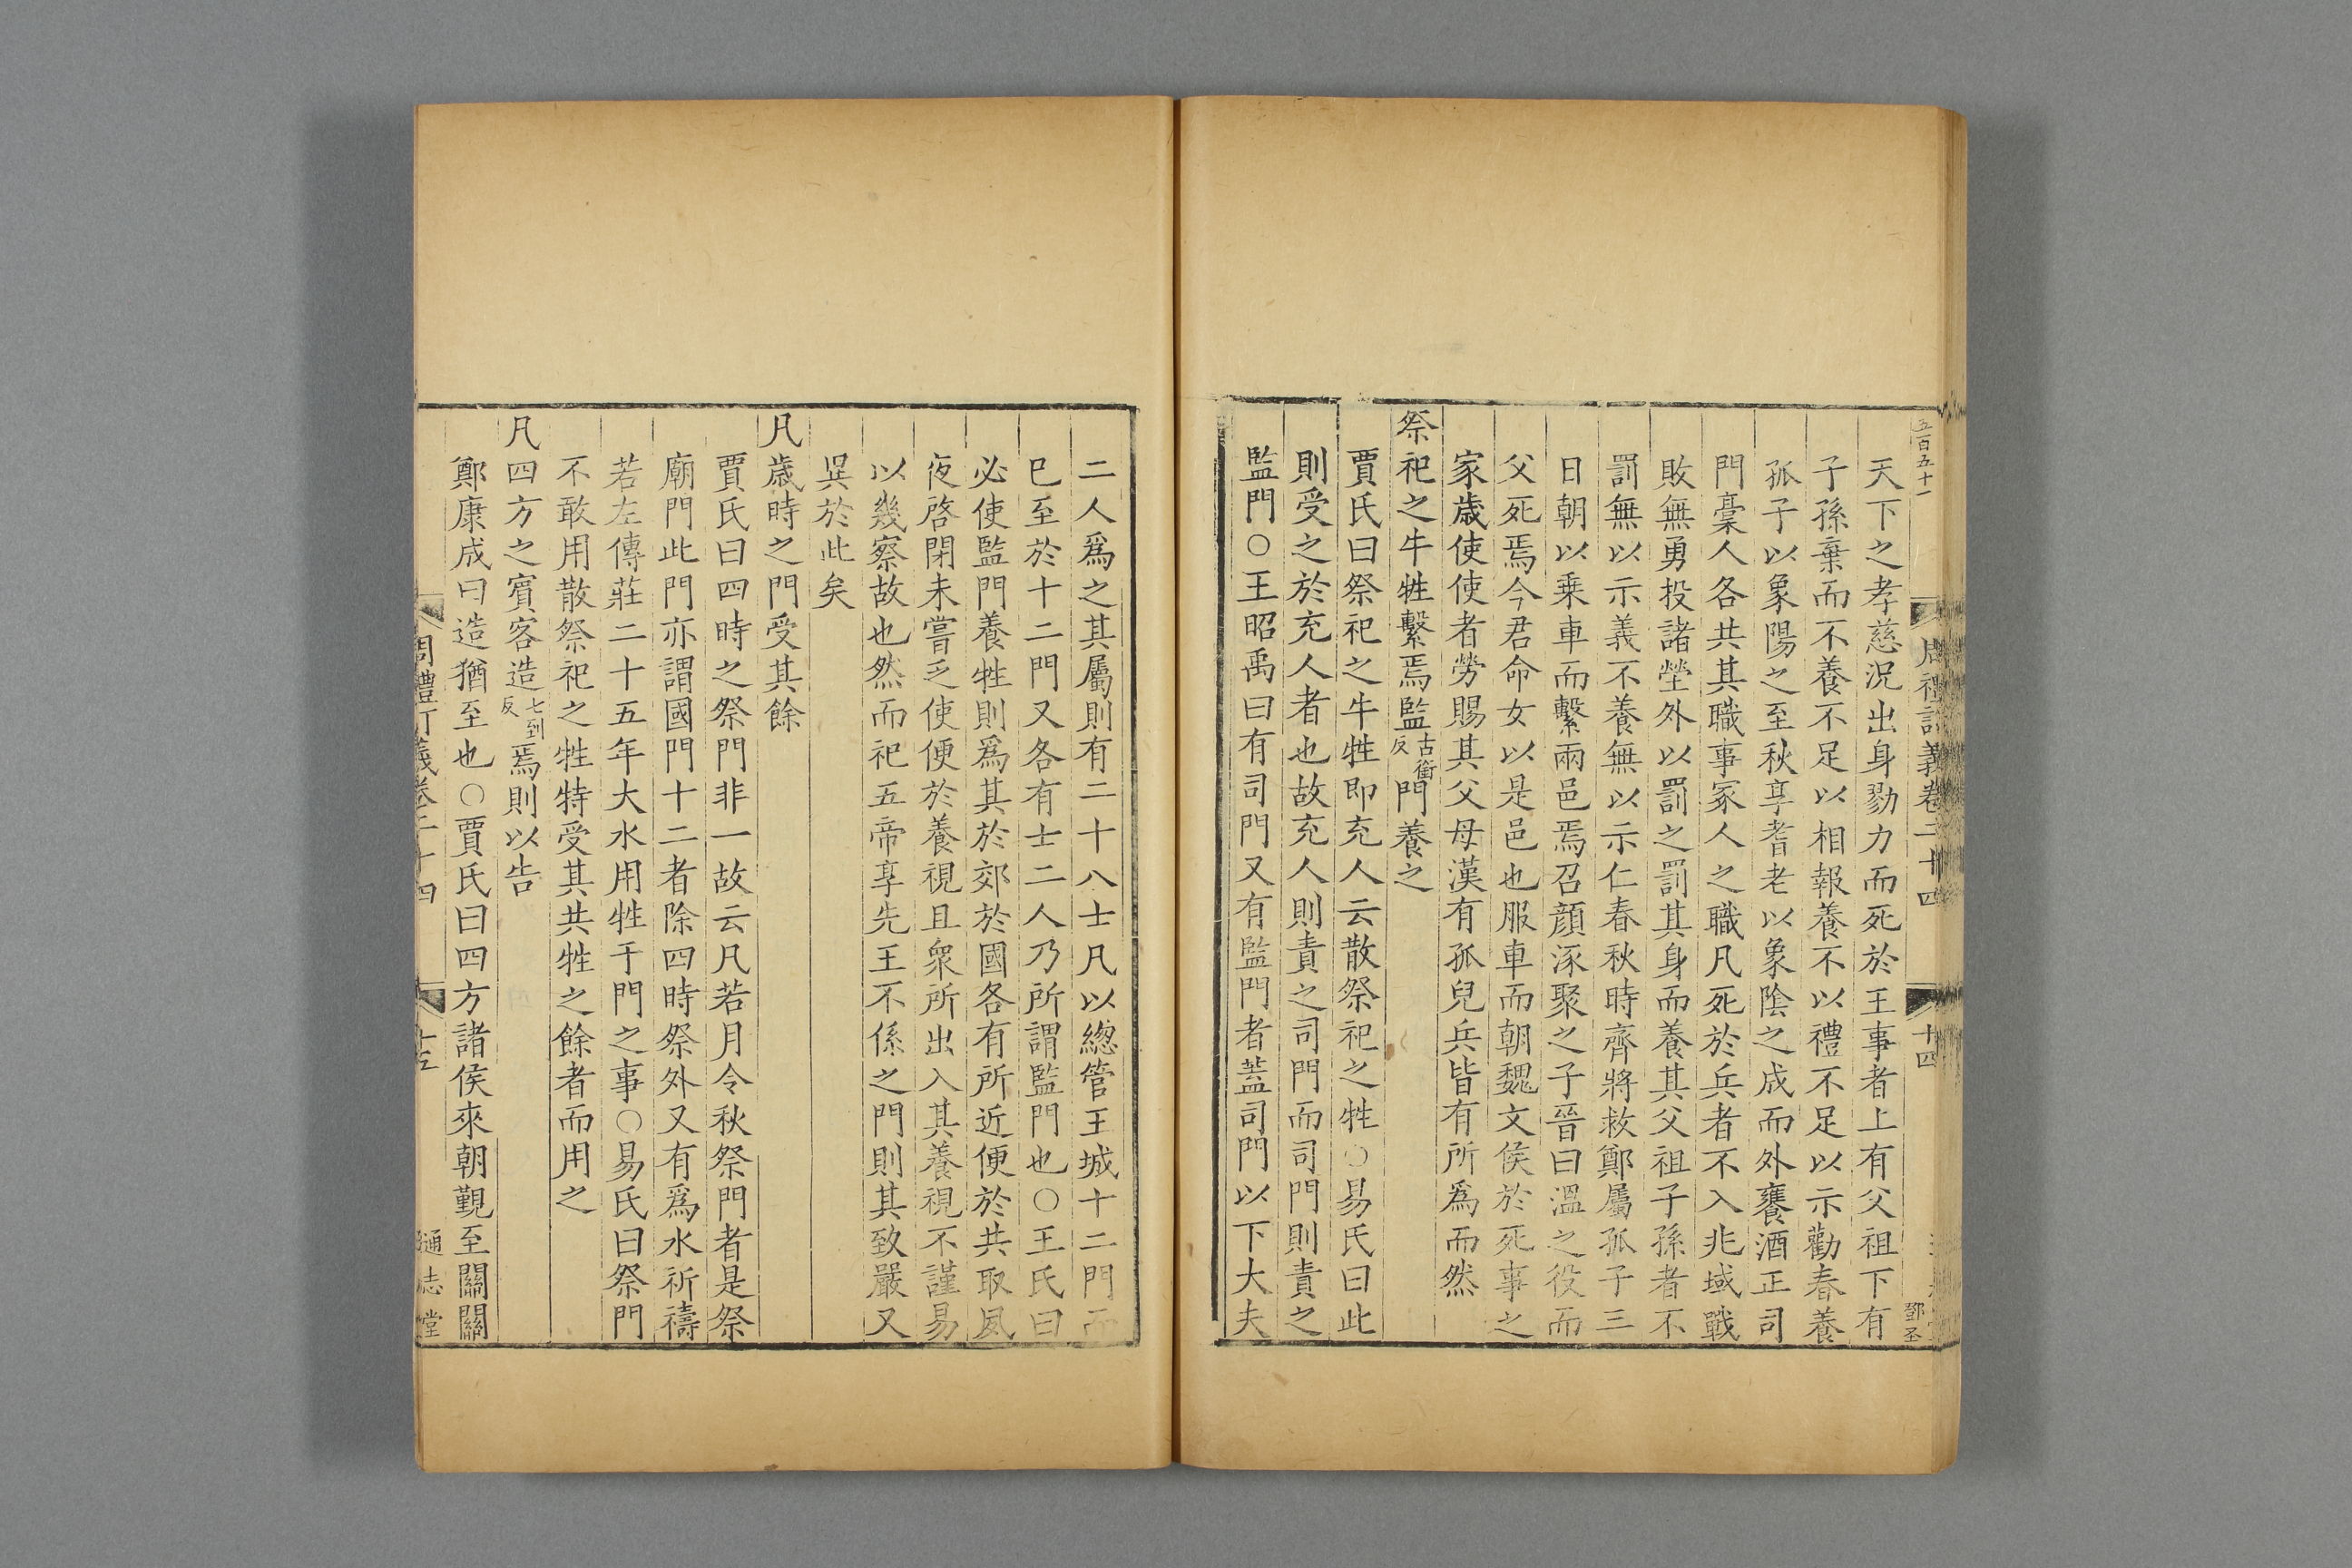 五百五十一
周禮訂義卷二十四
十四
鄧丕
天下之孝慈況出身勠力而死於王事者上有父祖下有
子孫棄而不養不足以相報養不以禮不足以示勸春養
孤子以象陽之至秋享耆老以象陰之成而外饔酒正司
門槀人各共其職事冢人之職凡死於兵者不入兆域戰
敗無勇投諸塋外以罰之罰其身而養其父祖子孫者不
罰無以示義不養無以示仁春秋時齊將救鄭屬孤子三
日朝以乗車而繫兩邑焉召顔涿聚之子晉曰溫之役而
父死焉今君命女以是邑也服車而朝魏文侯於死事之
家歳使使者勞賜其父母漢有孤兒兵皆有所爲而然
祭祀之牛牲繫焉監古銜反門養之
賈氏曰祭祀之牛牲即充人云散祭祀之牲○易氏曰此
則受之於充人者也故充人則責之司門而司門則責之
監門○王昭禹曰有司門又有監門者葢司門以下大夫
二人爲之其屬則有二十八士凡以緫管王城十二門而
巳至於十二門又各有士二人乃所謂監門也○王氏曰
必使監門養牲則爲其於郊於國各有所近便於共取夙
夜啓閉未嘗乏使便於養視且衆所出入其養視不謹易
以幾察故也然而祀五帝享先王不係之門則其致嚴又
異於此矣
凡歳時之門受其餘
賈氏曰四時之祭門非一故云凡若月令秋祭門者是祭
廟門此門亦謂國門十二者除四時祭外又有爲水祈禱
若左傳莊二十五年大水用牲于門之事○易氏曰祭門
不敢用散祭祀之牲特受其共牲之餘者而用之
凡四方之賓客造七到反焉則以告
鄭康成曰造猶至也○賈氏曰四方諸侯來朝覲至關關
周禮訂義卷二十四
十五
通志堂